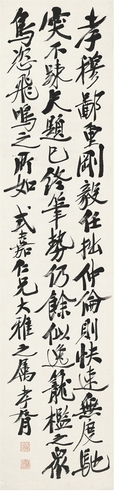 孝穆鄙重剛毅任拙仲倫則快速無度馳
突不疎大題已終筆勢仍餘似逸籠檻之眾
鳥恣飛鳴之所如 式嘉仁兄大雅之屬孝胥